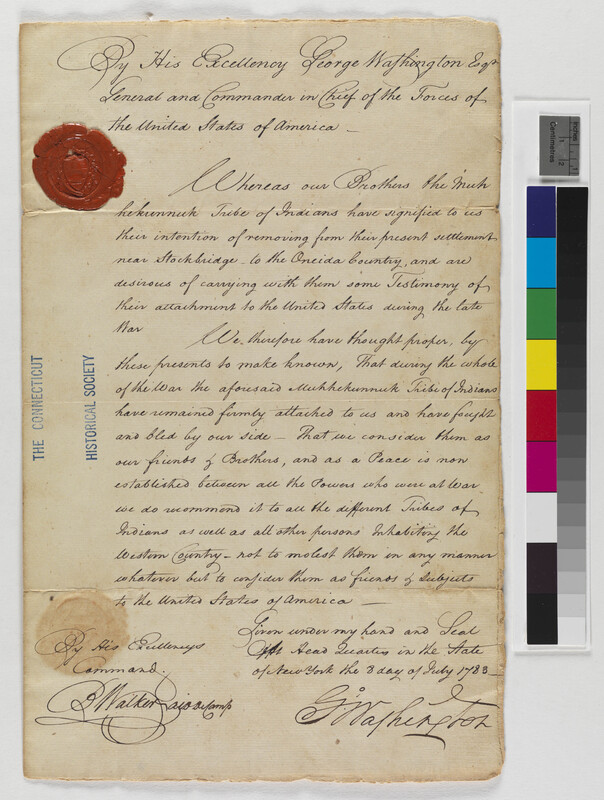 By His Excellency George Washington Esqr
General and Commander in Chief of the Forces of
the United States of America —
Whereas our Brothers the Muh
hekunnuk Tribe of Indians have signified to us
their intention of removing from their present settlement
near Stockbridge to the Oneida Country, and are
desirous of carrying with them some Testimony of
their attachment to the United States during the late
War
We therefore have thought proper, by
these presents to make known, That during the whole
of the War the aforesaid Muhhekunnuk Tribe of Indians
have remained firmly attached to us and have fought
and bled by our side — That we consider them as
our friends & Brothers, and as a Peace is now
established between all the Powers who were at War
we do recommend it to all the different Tribes of
Indians as well as all other persons Inhabiting the
Western Country — not to molest them in any manner
whatever but to consider them as friends & Subjects
to the United States of America —
Given under my hand and Seal
Head Quarters in the State
of New York the 8 day of July 1783 —
By His Excellencys
Command.
B Walker aid de Camp
Go: Washington
THE CONNECTICUT
HISTORICAL SOCIETY
Inches
Centimetres